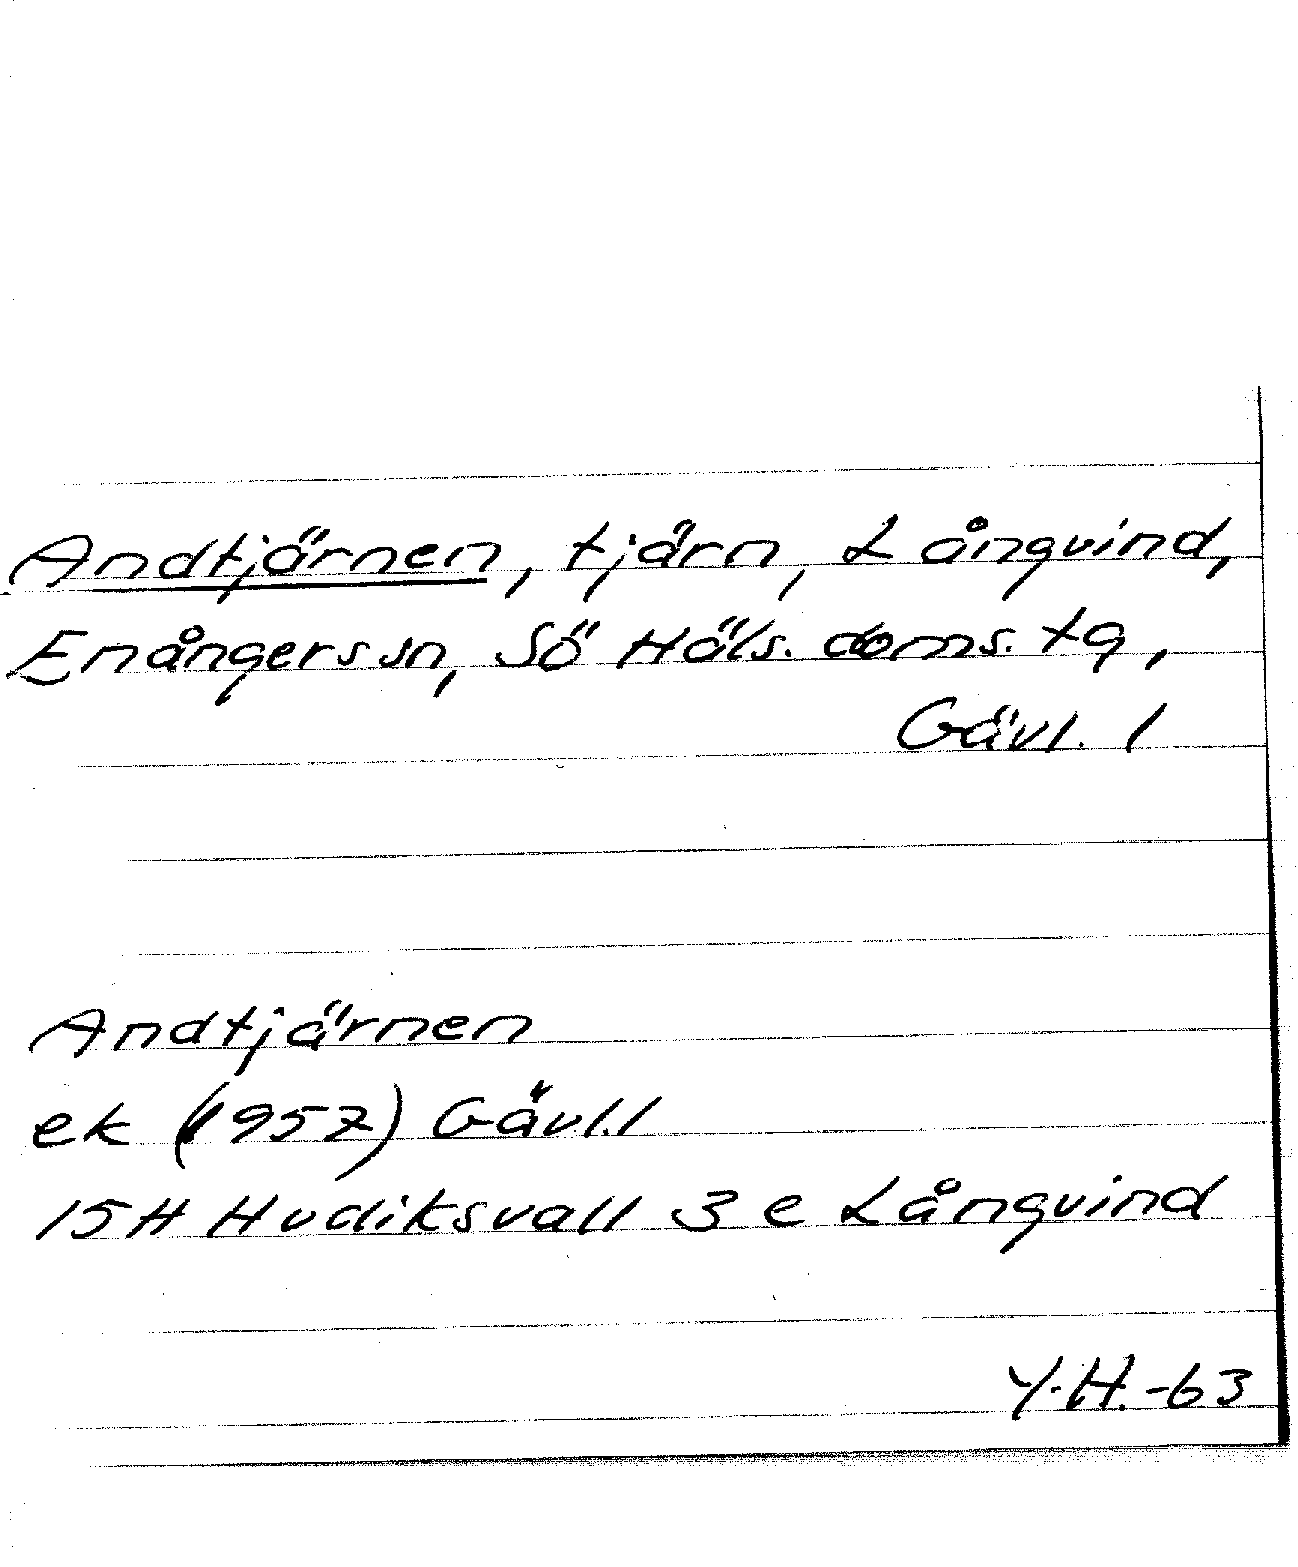 Andtjärnen, tjärn, Långvind,
Enångers sn, Sö Häls. doms. tg,
Gävl. l
Andtjärnen
ek (1957) Gävl. l
15H Hudiksvall 3 e Långvind
Y.H. -63